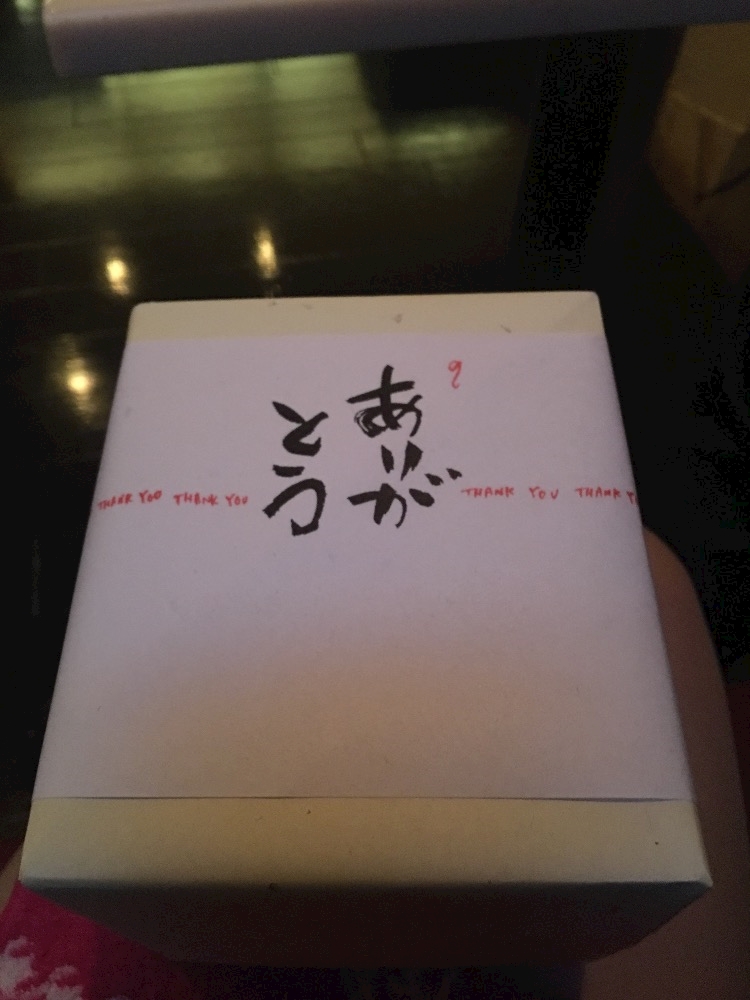 9
ありが
とう
THANK YOU THANK YOU
THANK YOU THANK Y